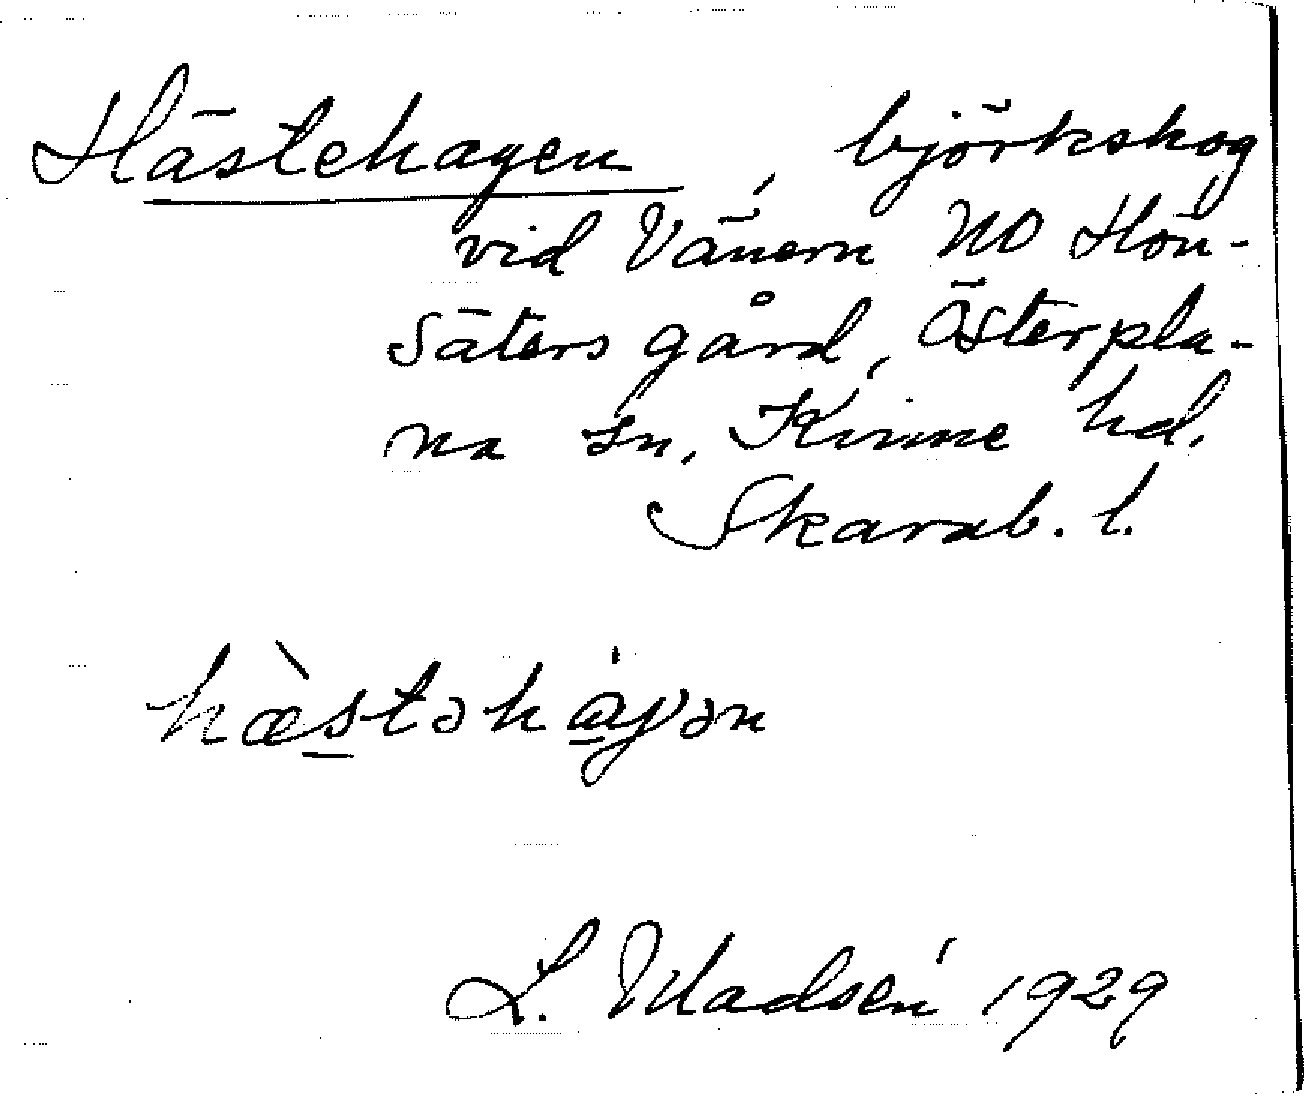 Hästehagen, björkskog
vid Vänern NO Hön-
säters gård, Österpla-
na sn, Kinne hd.
Skarab. l.
hæ̀stəhàɣən
L. Madsén 1929